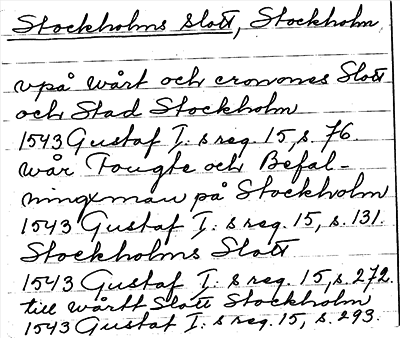 Stockholms slott, Stockholm
vpå wårt och cronones Slott
och Stad Stockholm
1543 Gustaf I:s reg. 15, s. 76.
wår Fougte och Befal-
ningxman på Stockholm
1543 Gustaf I:s reg. 15, s. 131.
Stockholms Slott
1543 Gustaf I:s reg. 15, s. 272.
till wårtt Slott Stockholm
1543 Gustaf I:s reg. 15, s. 293.